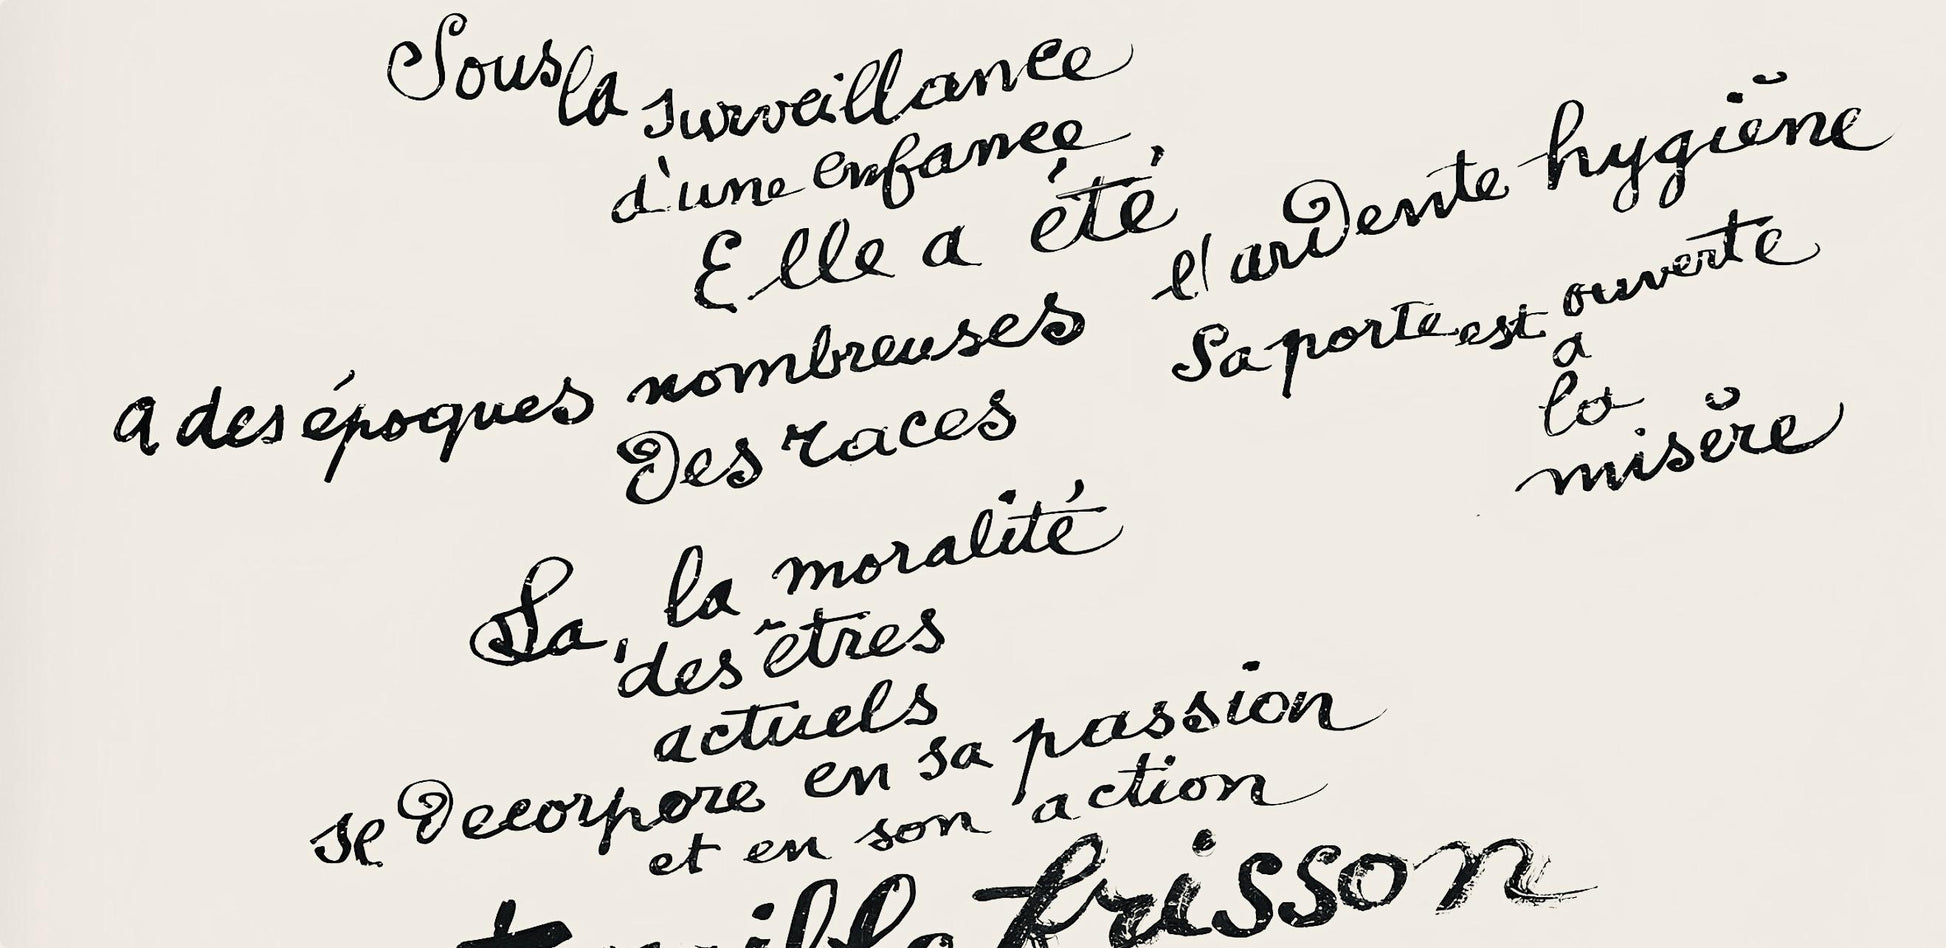 Sous la surveillance
d'une enfance
Elle a été,
l'ardente hygiène
a des époques nombreuses
Des races
Sa porte est ouverte
a
la
misère
La, la moralité
des êtres
actuels
se Decorpore en sa passion
et en son action
frisson